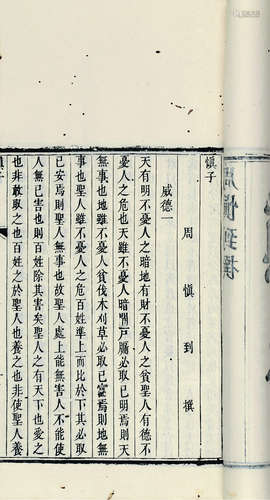 慎子
周慎到撰
威德一
天有明不憂人之暗地有財不憂人之貧聖人有德不
憂人之危也天雖不憂人暗闢戶牖必取已明焉則天
無事也地雖不憂人貧伐木刈草必取已富焉則地無
事也聖人雖不憂人之危百姓準上而比於下其必取
已安焉則聖人無事也故聖人處上能無害人不能使
人無已害也則百姓除其害矣聖人之有天下也受之
也非敢取之也百姓之於聖人也養之也非使聖人養
慎子